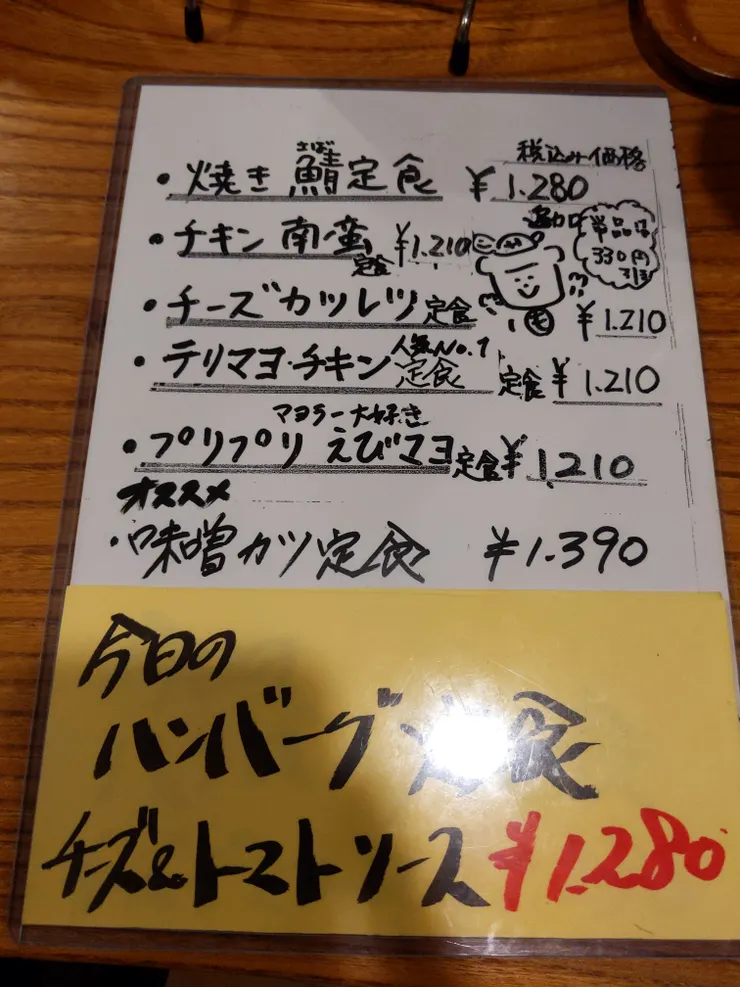 税込み価格
・焼き鯖定食 ¥1.280
さば
・チキン南蛮定食 ¥1.210
単品は
330円
・チーズカツレツ定食 ¥1.210
人気No.1
・テリマヨ・チキン定食 定食 ¥1.210
マヨラー大好き
・プリプリ えびマヨ定食 ¥1210
オススメ
・味噌カツ定食 ¥1.390
今日の
ハンバーグ定食
チーズ&トマトソース ¥1.280